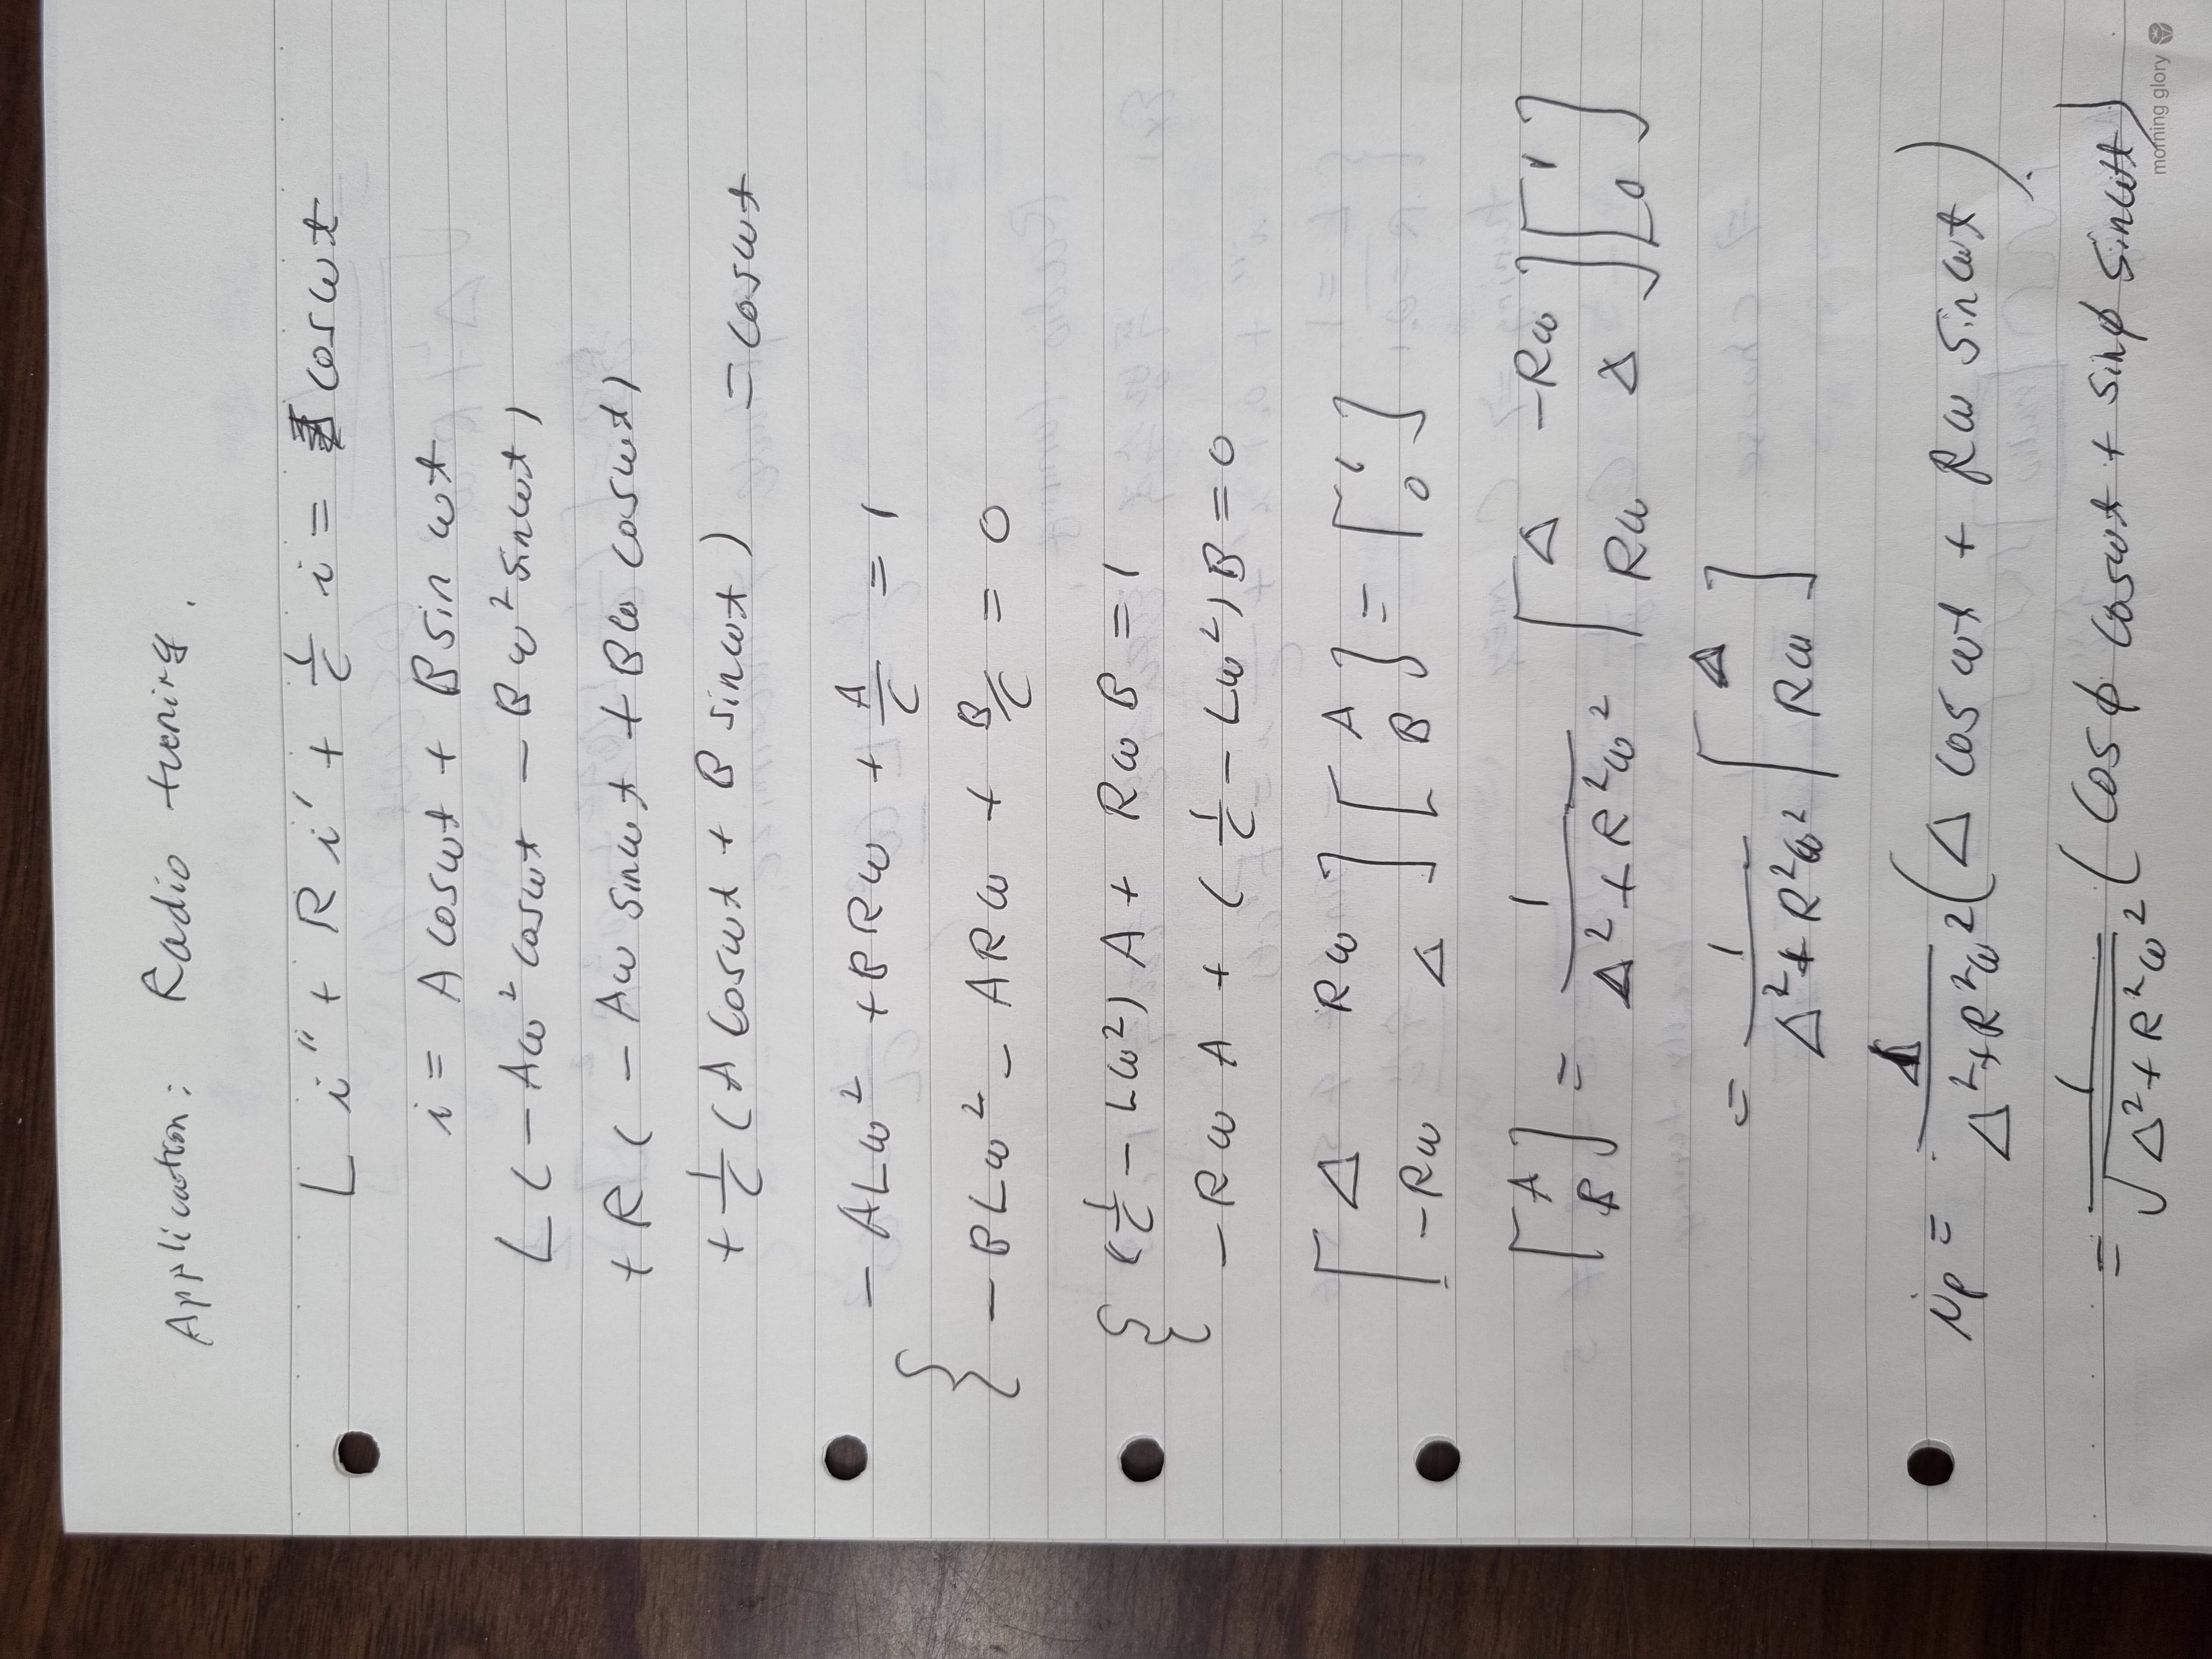 Application: Radio tuning.
L i'' + R i' + 1/C i = cos ωt
i = A cos ωt + B sin ωt
L ( - Aω² cos ωt - Bω² sin ωt )
+ R ( - Aω sin ωt + Bω cos ωt )
+ 1/C ( A cos ωt + B sin ωt ) = cos ωt
{ - ALω² + BRω + A/C = 1
- BLω² - ARω + B/C = 0
{ ( 1/C - Lω² ) A + Rω B = 1
- Rω A + ( 1/C - Lω² ) B = 0
[ Δ Rω ] [ A ] = [ 1 ]
[ -Rω Δ ] [ B ] [ 0 ]
[ A ] = 1 / (Δ² + R²ω²) [ Δ -Rω ] [ 1 ]
[ B ] [ Rω Δ ] [ 0 ]
= 1 / (Δ² + R²ω²) [ Δ ]
[ Rω ]
ip = / (Δ² + R²ω²) ( Δ cos ωt + Rω sin ωt )
= 1 / √(Δ² + R²ω²) ( cos φ cos ωt + sin φ sin ωt )
morning glory